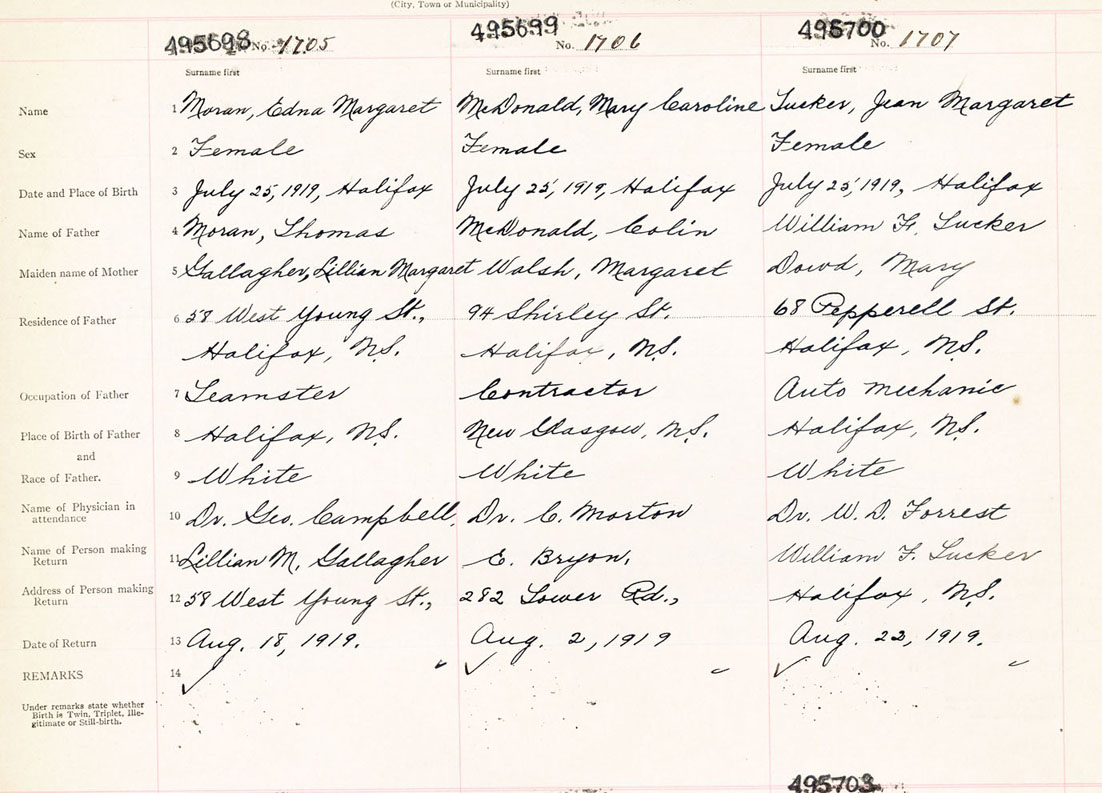 (City, Town or Municipality)
495698 No. 1705 495699 No. 1706 495700 No. 1707
Surname first Surname first Surname first
Name 1 Moran, Edna Margaret McDonald, Mary Caroline Tucker, Jean Margaret
Sex 2 Female Female Female
Date and Place of Birth 3 July 25, 1919, Halifax July 25, 1919, Halifax July 25, 1919, Halifax
Name of Father 4 Moran, Thomas McDonald, Colin William F. Tucker
Maiden name of Mother 5 Gallagher, Lillian Margaret Walsh, Margaret Dowd, Mary
Residence of Father 6 58 West Young St., 94 Shirley St. 68 Pepperell St.
Halifax, N.S. Halifax, N.S. Halifax, N.S.
Occupation of Father 7 Teamster Contractor Auto mechanic
Place of Birth of Father 8 Halifax, N.S. New Glasgow, N.S. Halifax, N.S.
and
Race of Father. 9 White White White
Name of Physician in attendance 10 Dr. Geo. Campbell, Dr. C. Morton Dr. W. D. Forrest
Name of Person making Return 11 Lillian M. Gallagher E. Bryon, William F. Tucker
Address of Person making Return 12 58 West Young St., 282 Tower Rd., Halifax, N.S.
Date of Return 13 Aug. 18, 1919. Aug. 2, 1919 Aug. 22, 1919.
REMARKS 14 ✓ ✓ ✓
Under remarks state whether
Birth is Twin, Triplet, Ille-
gitimate or Still-birth.
495703